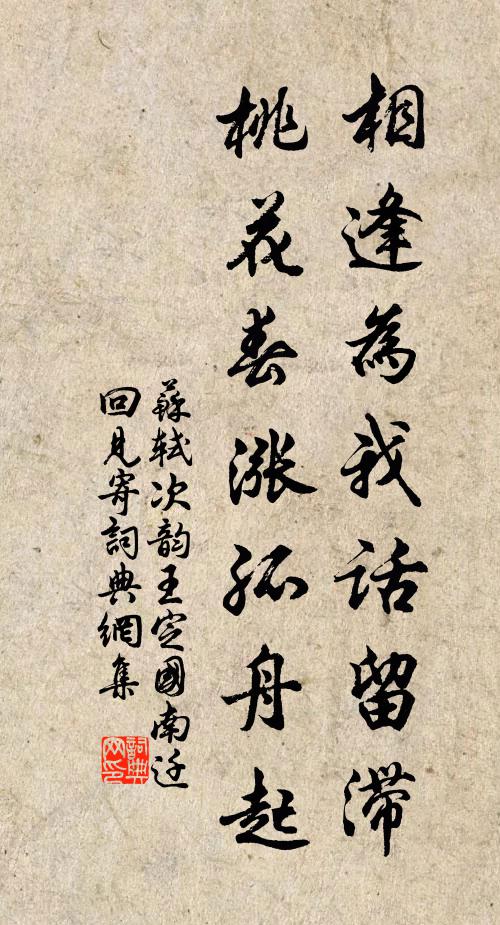 相逢為我話留滯
桃花春漲孤舟起
蘇軾次韵王定國南迁
回見寄詞典網集
詞典
网印